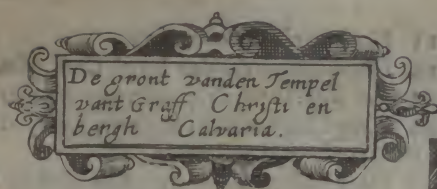 De gront vanden Tempel
vant Graff Christi en
bergh Calvaria.